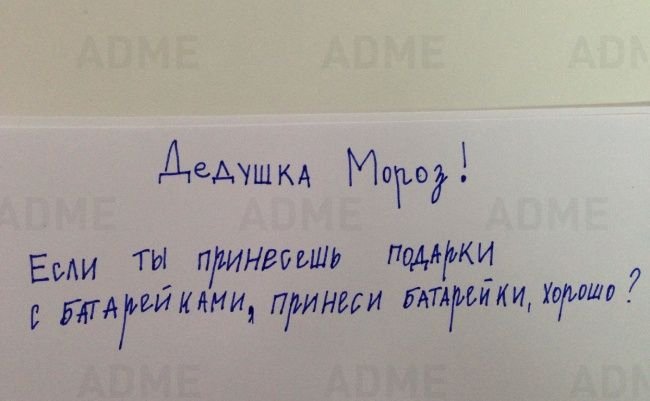 ADME ADME ADM
Дедушка Мороз!
ADME ADME ADME
Если ты принесешь подарки
с батарейками, принеси батарейки, хорошо?
ADME ADME ADME